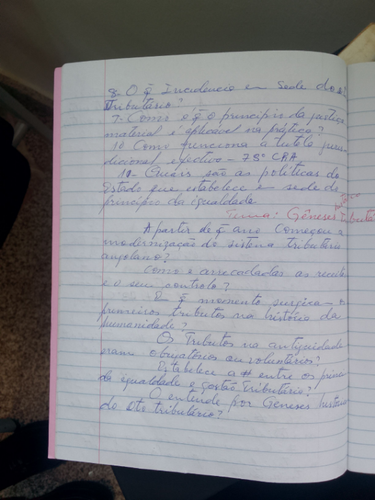 8- O q̃ Incidencia em Sede do
tributário?
7- Como é q̃ o princípio da justiça
material é aplicável na prática?
10 Como funciona a tutela juris
dicional efectiva - 75º CRA
10- Quais são as políticas do
Estado que estabelece em sede do
princípio da igualdade
Tema: Géneses Tributá
A partir de q̃ ano começou a
modernização do sistema tributário
angolano?
Como é arrecadadas as receit
e o seu controlo?
E q̃ momento surgiram os
primeiros tributos na história da
humanidade?
Os Tributos na antiguidade
eram obrigatórios ou voluntários?
Estabelece a # entre os princ
da igualdade e gestão Tributário?
O entende por Géneses histó
do Dto tributário?